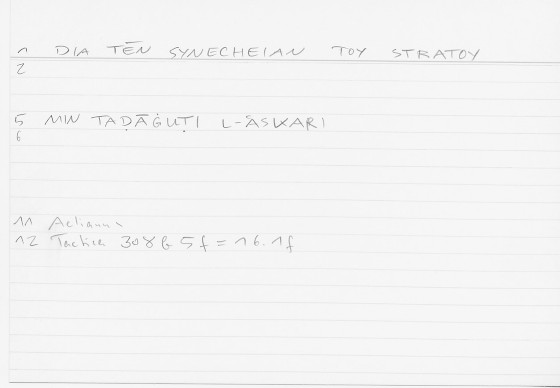 1 DIA TĒN SYNECHEIAN TOY STRATOY
2
5 MN TAḌĀĠUṬI L-ʿASKARI
6
11 Aelianus
12 Tactica 308 b 5f = 16.1f